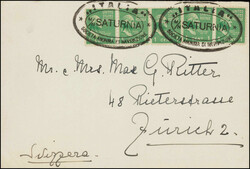 "ITALIA"
M/N SATURNIA
"ITALIA"
M/N SATURNIA
Mr. & Mrs. Max G. Ritter
48 Rieterstrasse
Zürich 2.
Svizzera